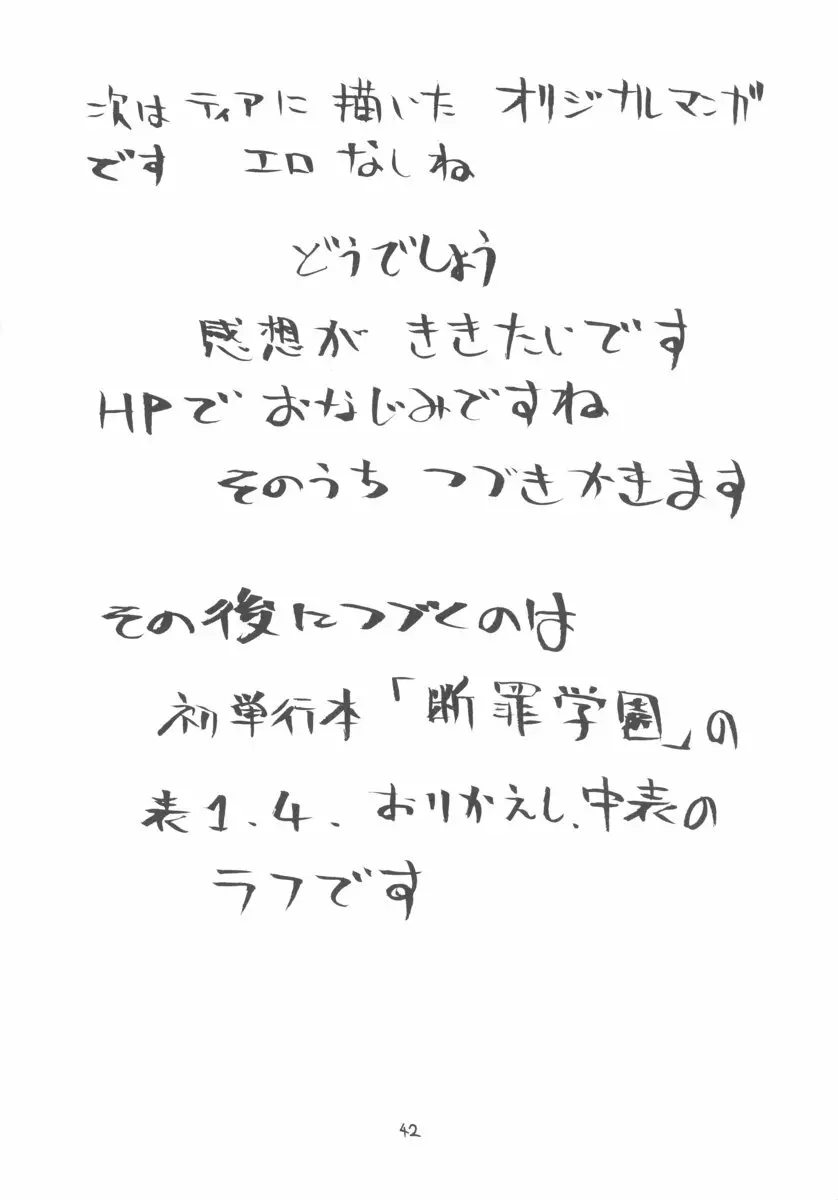 次は ティアに 描いた オリジナルマンガ
です エロ なしね
どうでしょう
感想が ききたいです
HPで おなじみですね
そのうち つづきかきます
その後につづくのは
初単行本「断罪学園」の
表1.4.おりかえし、中表の
ラフです
42